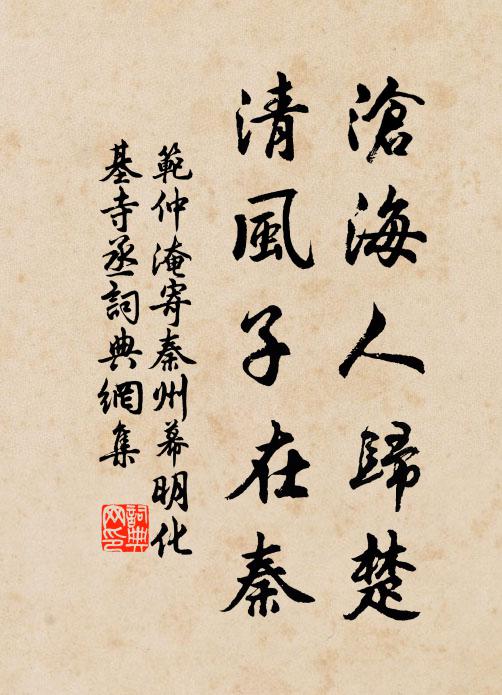 滄海人歸楚
清風子在秦
範仲淹寄秦州幕明化
基寺丞詞典網集
詞典網印